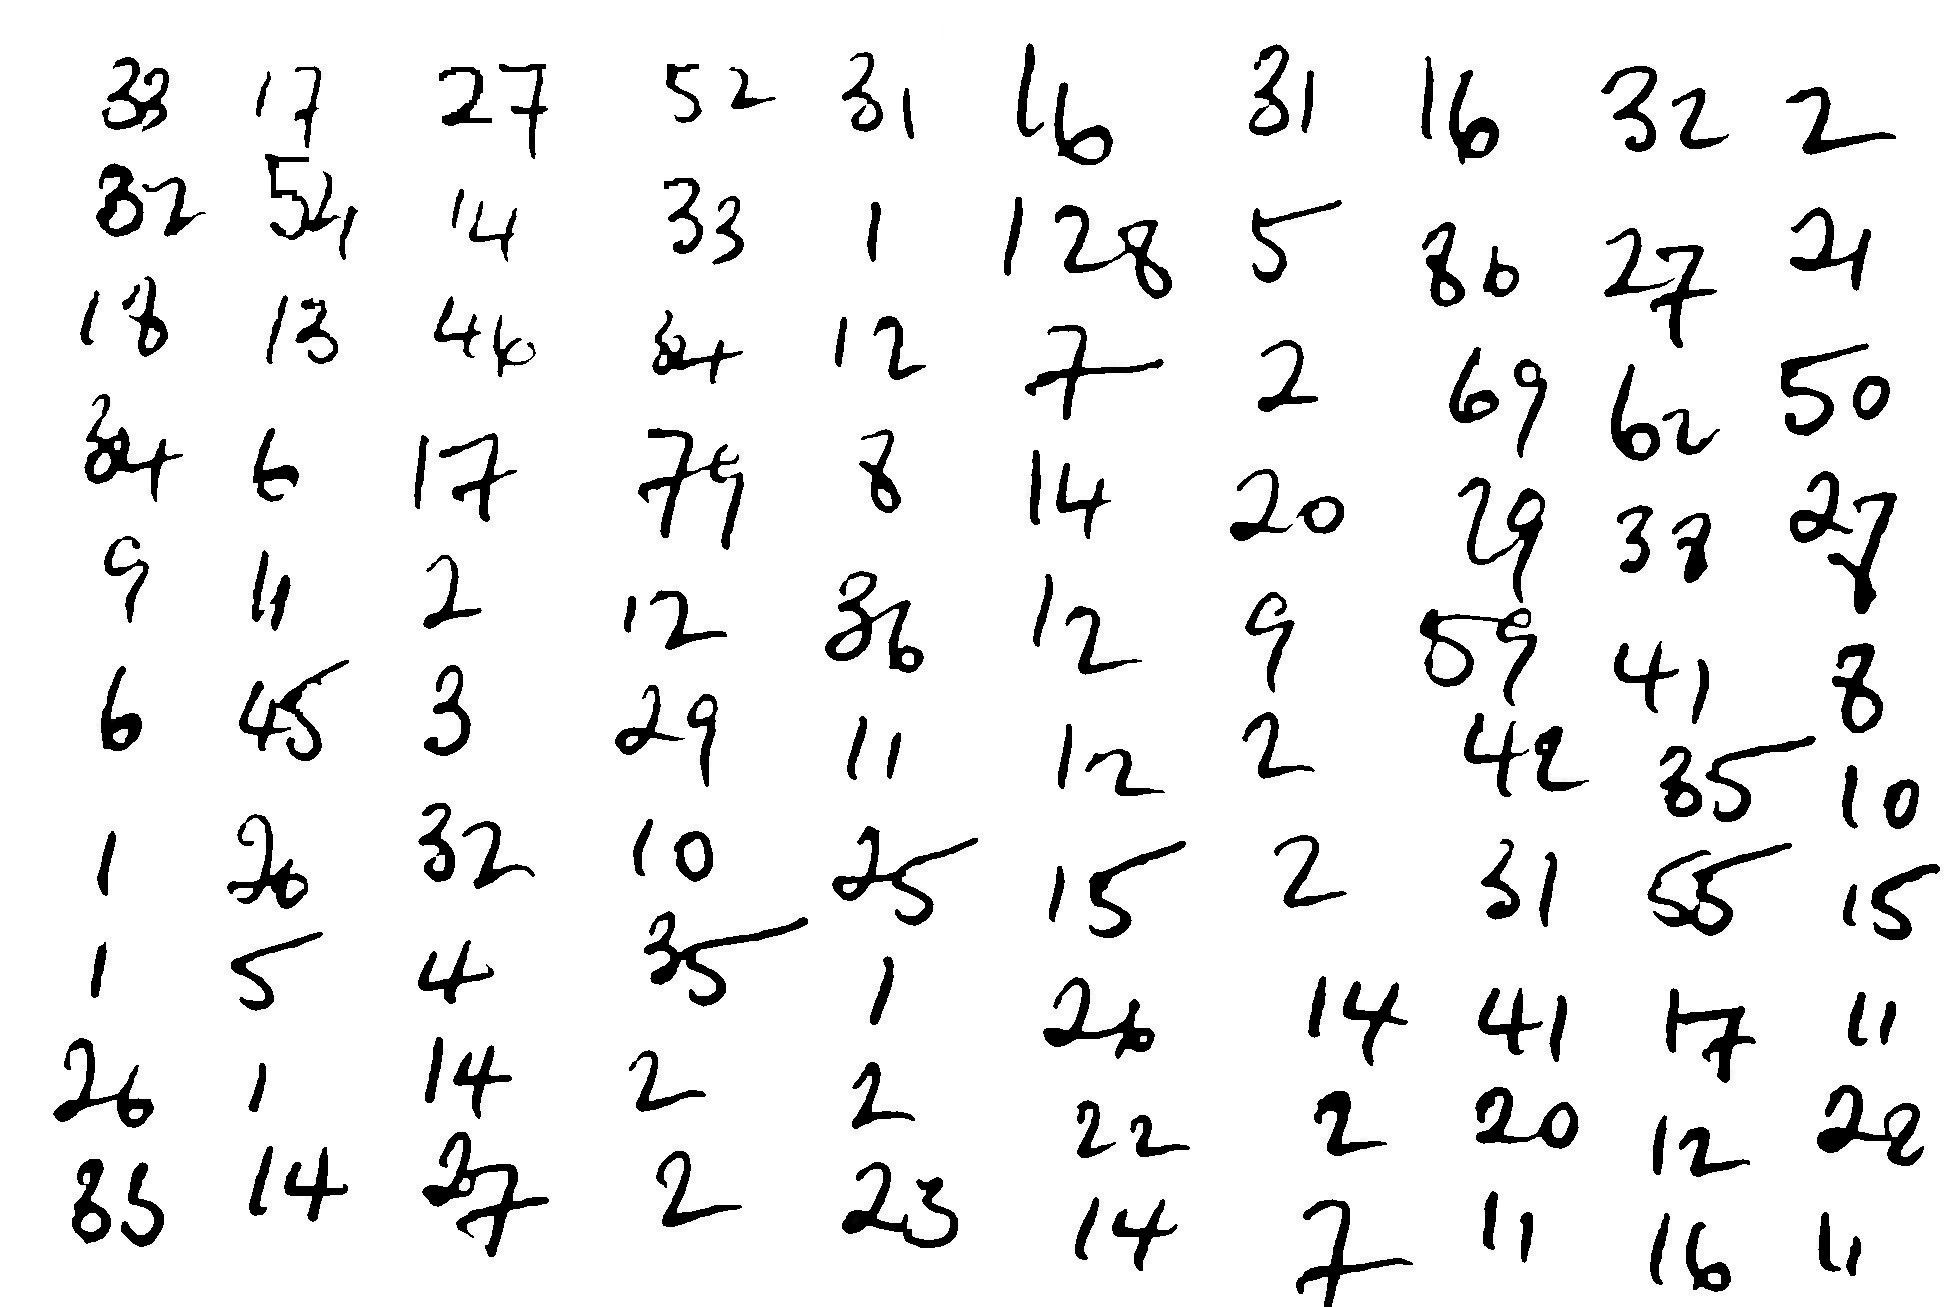 33 17 27 52 31 16 31 16 32 2
32 54 14 33 1 128 5 86 27 21
18 13 46 34 12 7 2 69 62 50
34 6 17 79 8 14 20 29 38 27
9 11 2 12 36 12 9 59 41 8
6 45 3 29 11 12 2 42 35 10
1 26 32 10 25 15 2 31 55 15
1 5 4 35 1 26 14 41 17 11
26 1 14 2 2 22 2 20 12 22
35 14 27 2 23 14 7 11 16 11